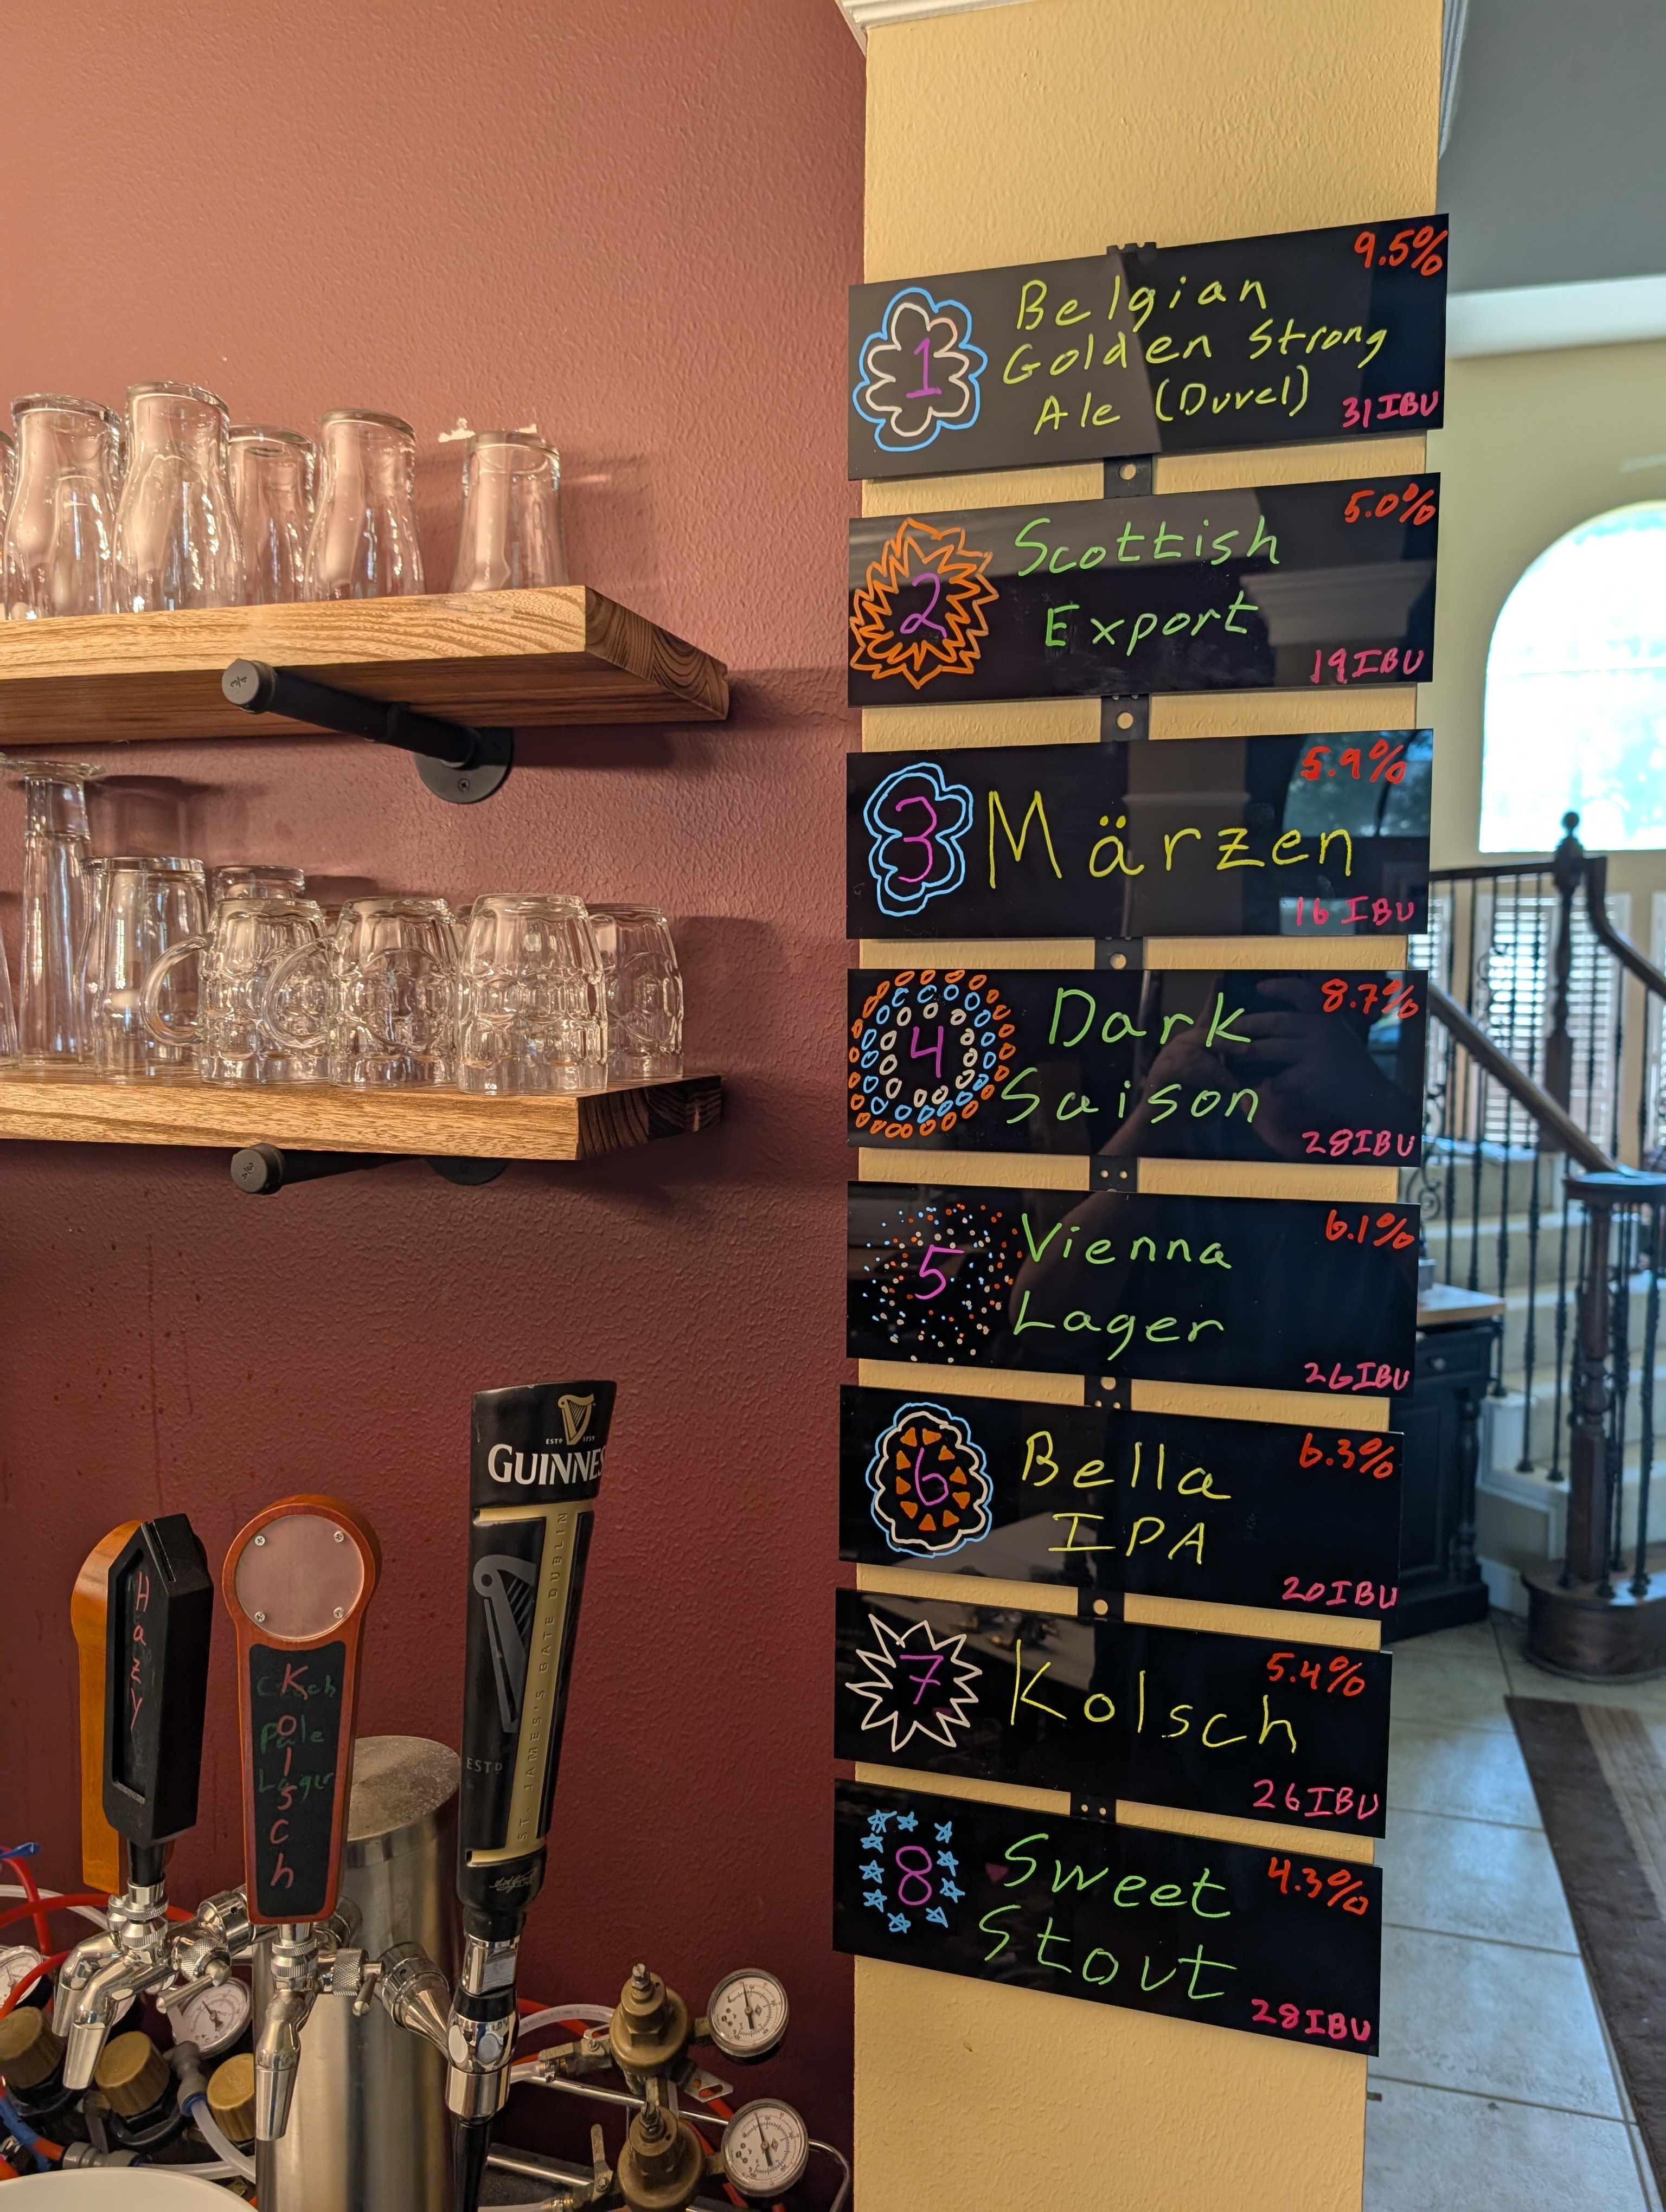 9.5%
1
Belgian
Golden Strong
Ale (Duvel)
31 IBU
5.0%
2
Scottish
Export
19 IBU
5.9%
3
Märzen
16 IBU
8.7%
4
Dark
Saison
28 IBU
6.1%
5
Vienna
Lager
26 IBU
6.3%
6
Bella
IPA
20 IBU
5.4%
7
Kolsch
26 IBU
4.3%
8
Sweet
Stout
28 IBU
Hazy
Kolsch
Pale
Lager
ESTD 1759
GUINNES
ST. JAMES'S GATE DUBLIN
ESTD